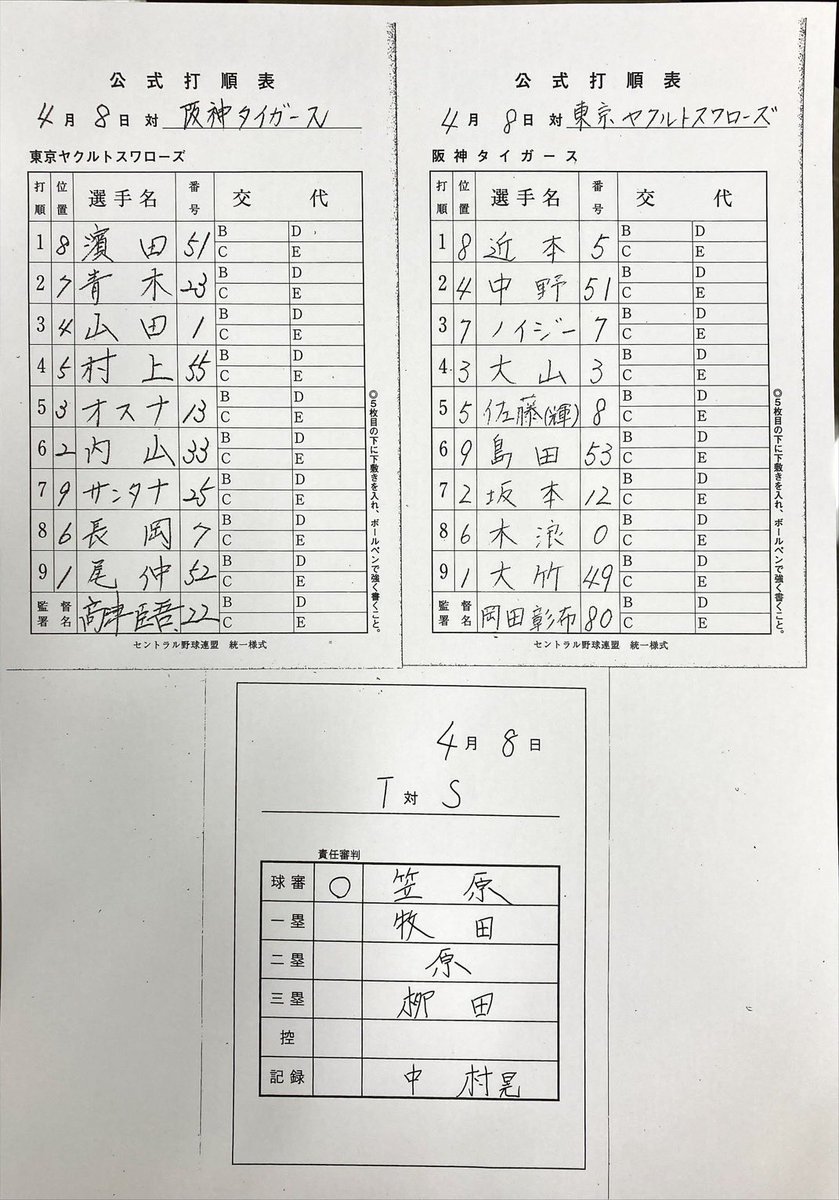 公式打順表
4月8日対 阪神タイガース
東京ヤクルトスワローズ
打順 位置 選手名 番号 交代
1 8 濱田 51 B D C E
2 7 青木 23 B D C E
3 4 山田 1 B D C E
4 5 村上 55 B D C E
5 3 オスナ 13 B D C E
6 2 内山 33 B D C E
7 9 サンタナ 25 B D C E
8 6 長岡 7 B D C E
9 1 尾仲 52 B D C E
監督署名 高津臣吾 22 B D C E
◎5枚目の下に下敷きを入れ、ボールペンで強く書くこと。
セントラル野球連盟 統一様式
公式打順表
4月8日対 東京ヤクルトスワローズ
阪神タイガース
打順 位置 選手名 番号 交代
1 8 近本 5 B D C E
2 4 中野 51 B D C E
3 7 ノイジー 7 B D C E
4 3 大山 3 B D C E
5 5 佐藤(輝) 8 B D C E
6 9 島田 53 B D C E
7 2 坂本 12 B D C E
8 6 木浪 0 B D C E
9 1 大竹 49 B D C E
監督署名 岡田彰布 80 B D C E
◎5枚目の下に下敷きを入れ、ボールペンで強く書くこと。
セントラル野球連盟 統一様式
4月8日
T対S
責任審判
球審 ○ 笠原
一塁 牧田
二塁 原
三塁 柳田
控
記録 中村晃